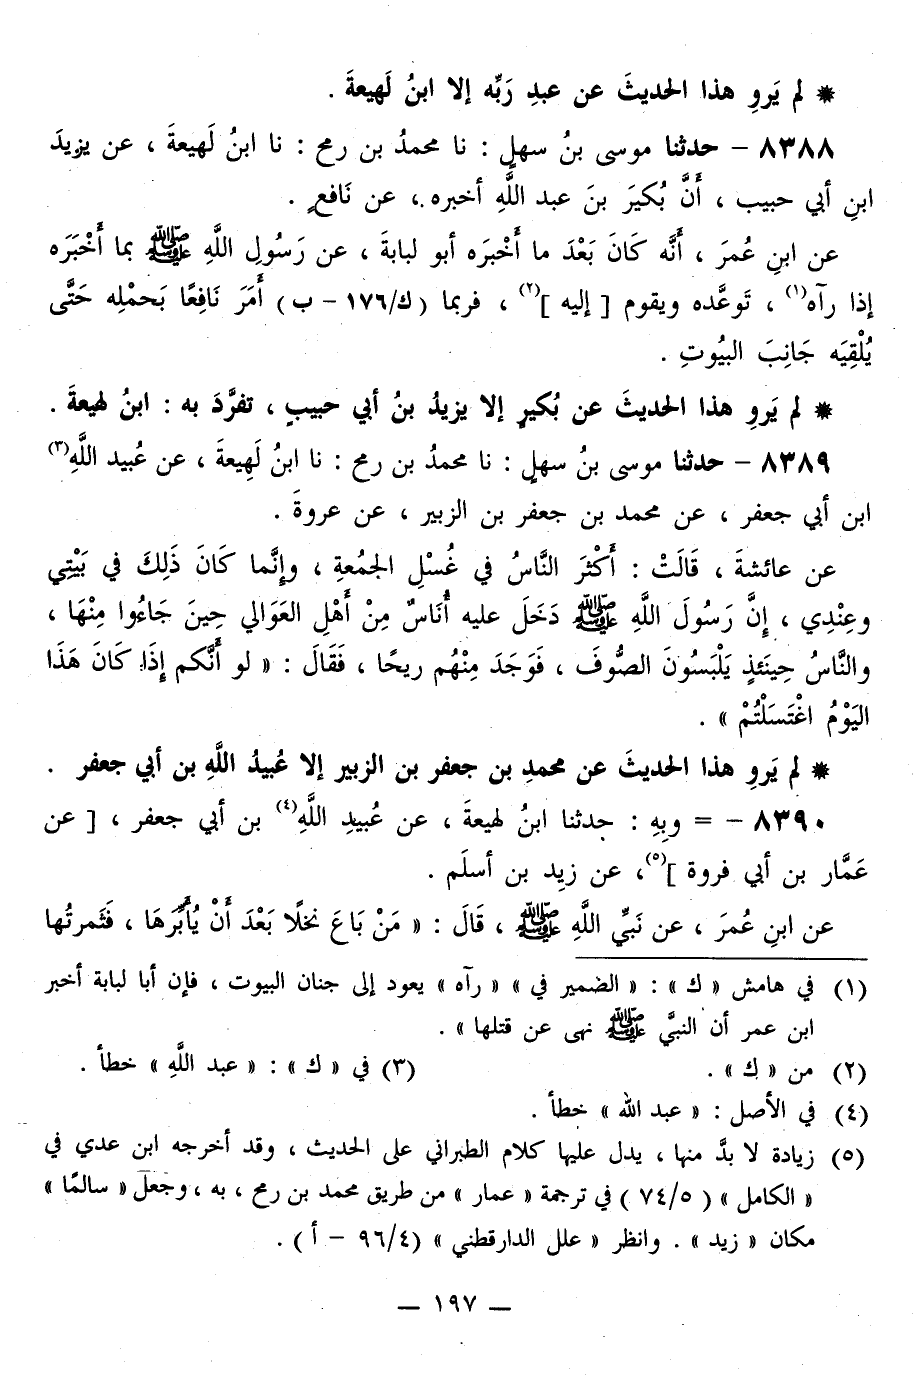 * لم يَروِ هذا الحديثَ عن عبدِ رَبِّه إلا ابنُ لَهيعةَ .
٨٣٨٨ – حدثنا موسى بنُ سهلٍ : نا محمدُ بن رمح : نا ابنُ لَهيعةَ ، عن يزيدَ
ابنِ أبي حبيب ، أَنَّ بُكيرَ بنَ عبد اللَّهِ أخبره ، عن نَافعٍ .
عن ابنِ عُمرَ ، أَنَّه كَانَ بَعْدَ ما أَخْبَرَه أبو لبابةَ ، عن رَسُولِ اللَّهِ ﷺ بما أَخْبَرَه
إذا رآه(١) ، تَوعَّده ويقوم [ إليه ](٢) ، فربما ( ك/١٧٦ – ب ) أَمَرَ نَافِعًا بَحملِه حَتَّى
يُلْقِيَه جَانِبَ البيُوتِ .
* لم يَروِ هذا الحديثَ عن بُكيرٍ إلا يزيدُ بنُ أبي حبيبٍ ، تفرَّدَ به : ابنُ لهيعةَ .
٨٣٨٩ – حدثنا موسى بنُ سهلٍ : نا محمدُ بن رمح : نا ابنُ لَهِيعةَ ، عن عُبيد اللَّهِ(٣)
ابن أبي جعفر ، عن محمد بن جعفر بن الزبير ، عن عروةَ .
عن عائشةَ ، قَالَتْ : أَكْثرَ النَّاسُ في غُسْلِ الجمُعةِ ، وإنَّما كَانَ ذَلِكَ في بَيْتِي
وعِنْدِي ، إِنَّ رَسُولَ اللَّهِ ﷺ دَخَلَ عليه أُنَاسٌ مِنْ أَهْلِ العَوَالي حِينَ جَاءُوا مِنْهَا ،
والنَّاسُ حِينَئذٍ يَلْبَسُونَ الصُّوفَ ، فَوَجَدَ مِنْهُم ريحًا ، فَقَالَ : « لو أَنَّكم إِذَا كَانَ هَذَا
اليَوْمُ اغْتَسَلْتُمْ » .
* لم يَروِ هذا الحديثَ عن محمدِ بن جعفر بن الزبير إلا عُبيدُ اللَّهِ بن أبي جعفر .
٨٣٩٠ – = وبِهِ : حدثنا ابنُ لهيعةَ ، عن عُبيدِ اللَّهِ(٤) بن أبي جعفر ، [ عن
عَمَّار بن أبي فروة ](٥)، عن زيد بن أسلَم .
عن ابنِ عُمرَ ، عن نَبيِّ اللَّهِ ﷺ ، قَالَ : « مَنْ بَاعَ نخلًا بَعْدَ أَنْ يُأَبِّرَهَا ، فَثَمرتُها
(١) في هامش « ك » : « الضمير في » « رآه » يعود إلى جنان البيوت ، فإن أبا لبابة أخبر
ابن عمر أن النبيَّ ﷺ نهى عن قتلها » .
(٢) من « ك » . (٣) في « ك » : « عبد اللَّهِ » خطأ .
(٤) في الأصل : « عبد الله » خطأ .
(٥) زيادة لا بدَّ منها ، يدل عليها كلام الطبراني على الحديث ، وقد أخرجه ابن عدي في
« الكامل » ( ٧٤/٥ ) في ترجمة « عمار » من طريق محمد بن رمح ، به ، وجعل « سالمًا »
مكان « زيد » . وانظر « علل الدارقطني » (٩٦/٤ – أ ) .
– ١٩٧ –